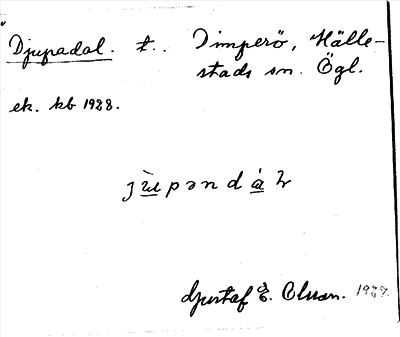 Djupadal. t. Dimperö, Hälle-
stads sn. Ögl.
ek. kb 1928.
Gustaf E. Olsson.